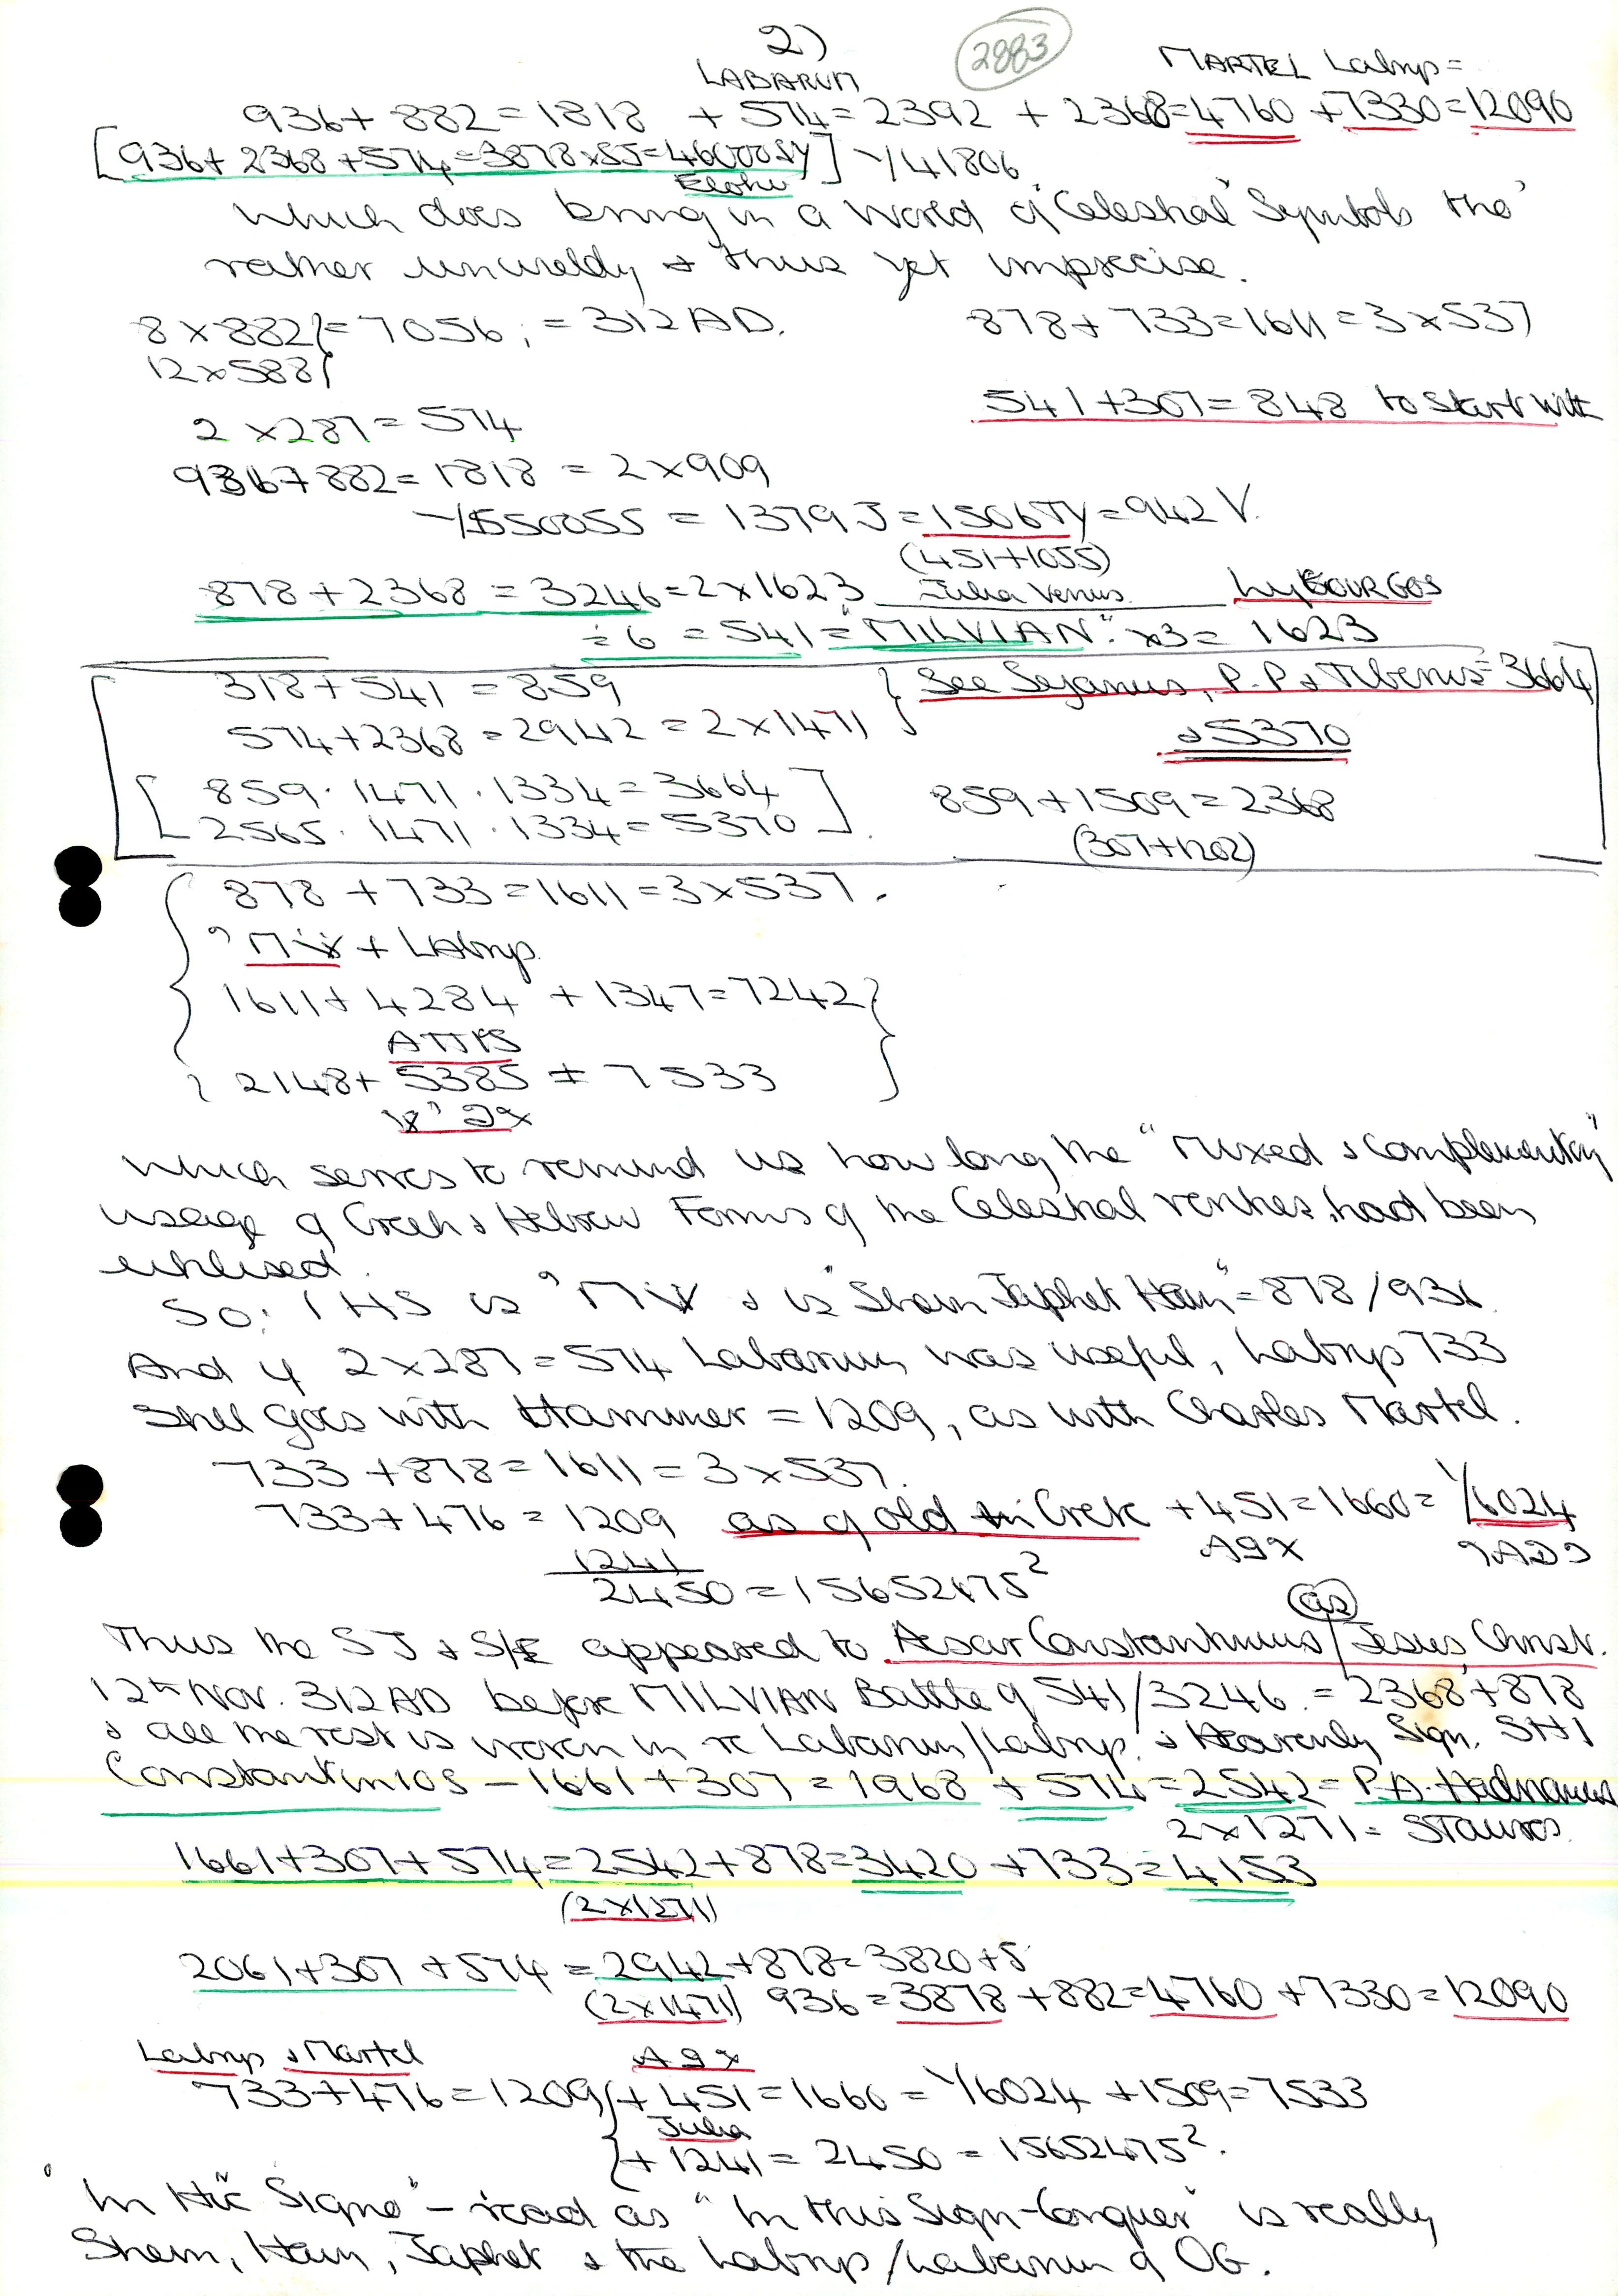 2)
2883
LABARUM
MARTEL Labrys =
936 + 882 = 1818 + 574 = 2392 + 2368 = 4760 + 7330 = 12090
[936 + 2368 + 574 = 3878 x SS = 46000 SY] √41806
which does bring in a World of "Celestial" Symbols tho'
rather unwieldy & thus yet imprecise.
8 x 882 } = 7056, = 312 AD. 878 + 733 = 1611 = 3 x 537
12 x 588 }
541 + 307 = 848 to start with
2 x 287 = 574
936 + 882 = 1818 = 2 x 909
= 1379 J = 1506 TY = 942 V.
(451 + 1055)
878 + 2368 = 3246 = 2 x 1623 Julia Venus
÷ 6 = 541 = "MILVIAN" x 3 = 1623
318 + 541 = 859 } See Sejanus, P.P & Tiberius = 3664
574 + 2368 = 2942 = 2 x 1471 } & 5370
[859 . 1471 . 1334 = 3664
2565 . 1471 . 1334 = 5370]. 859 + 1509 = 2368
(307 + 1202)
878 + 733 = 1611 = 3 x 537.
+ LAbrys.
1611 + 4284 + 1347 = 7242 }
ATTYS
2148 + 5385 = 7533 }
which serves to remind us how long the "Mixed & Complementary"
usage of Greek & Hebrew Forms of the Celestial verities, had been
utilised.
So: IHS is & is "Shem Japhet Ham" = 878/936.
And if 2 x 287 = 574 Labarum was useful, Labrys 733
still goes with Hammer = 1209, as with Charles Martel.
733 + 878 = 1611 = 3 x 537.
733 + 476 = 1209 as of old in Crete + 451 = 1660 = √6024
1241
2450 = 15652475²
(as)
Thus the SJ & appeared to Aesar Constantinus / Jesus Christ.
12th Nov. 312 AD before MILVIAN Battle of 541/3246. = 2368 + 878
& all the rest is woven in re Labarum/Labrys. & Heavenly Sign.
Constantinios - 1661 + 307 = 1968 + 574 = 2542 = P.A. Hadrianus
2 x 1271 = Stauros.
1661 + 307 + 574 = 2542 + 878 = 3420 + 733 = 4153
(2 x 1271)
2061 + 307 + 574 = 2942 + 878 = 3820 + 5
(2 x 1471) 936 = 3878 + 882 = 4760 + 7330 = 12090
Labrys & Martel
733 + 476 = 1209 { + 451 = 1660 = √6024 + 1509 = 7533
Julia
{ + 1241 = 2450 = 15652475².
"In Hic Signo" - read as "In this Sign - Conquer" is really
Shem, Ham, Japhet & the Labrys/Labarum of OG.